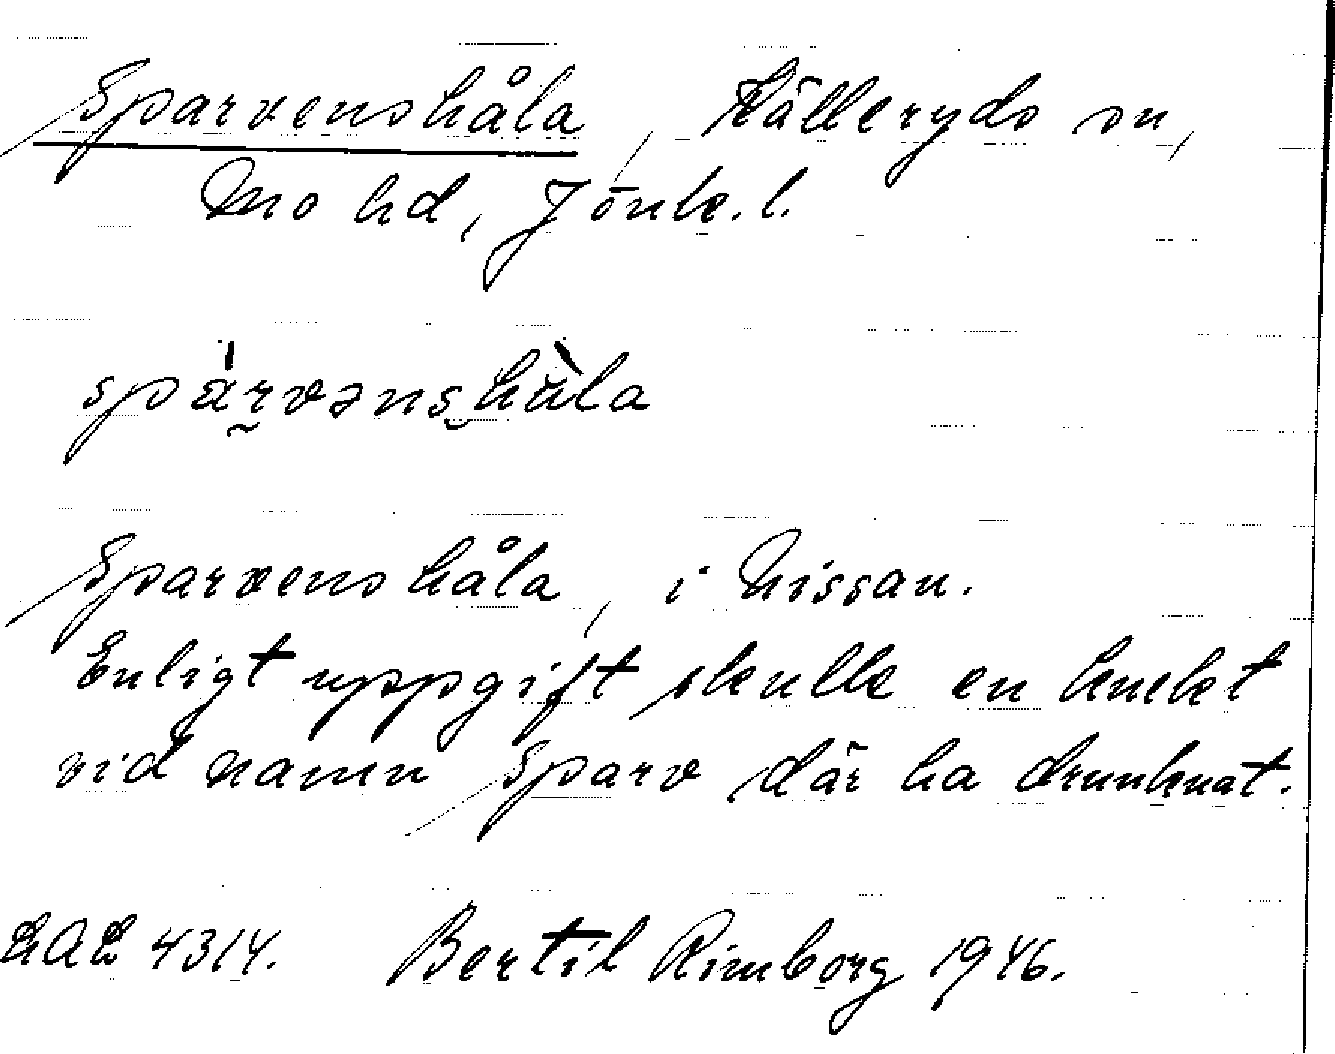 Sparvenshåla, Kålleryds sn,
Mo hd, Jönk. l.
spàrvənshùla
Sparvenshåla, i Nissan.
Enligt uppgift skulle en knekt
vid namn Sparv där ha drunknat.
LAL 4314. Bertil Rimborg 1946.